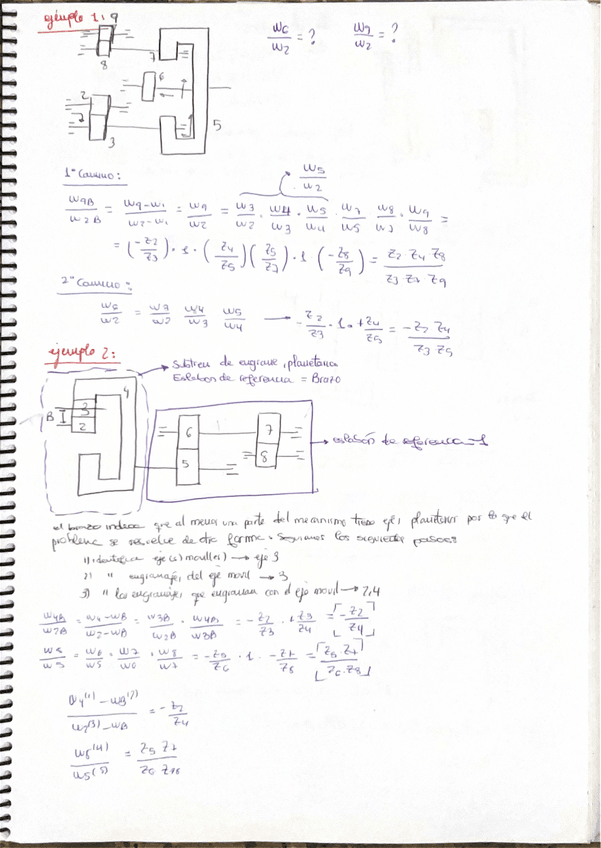 ejemplo 1:
9
8
7
6
5
2
3
w6/w2 = ? w9/w2 = ?
1º Camino:
w5/w2
w9B/w2B = w9-w1/w2-w1 = w9/w2 = w3/w2 · w4/w3 · w5/w4 · w7/w5 w8/w7 · w9/w8 =
= (-z2/z3) · 1 · (z4/z5)(z5/z7) · 1 (-z8/z9) = z2 z4 z8/z3 z7 z9
2º Camino:
w6/w2 = w3/w2 w4/w3 w5/w4 → -z2/z3 · 1 · +z4/z5 = -z2 z4/z3 z5
ejemplo 2:
→ Subtren de engrane, planetario
Eslabon de referencia = Brazo
4
B I 3
2
6 7
5 8
→ eslabón de referencia → 1
el brazo indica que al menos una parte del mecanismo tiene eje, planetario por lo que el
problema se resuelve de otra forma. Seguimos los siguientes pasos:
1) identifica eje(s) movil(es) → eje 3
2) " engranajes del eje movil → 3
3) " los engranajes que engranan con el eje movil → 2,4
w4B/w2B = w4-wB/w2-wB = w3B/w2B · w4B/w3B = -z2/z3 · +z3/z4 = -z2/z4
w8/w5 = w6/w5 · w7/w6 · w8/w7 = -z5/z6 · 1 · -z7/z8 = z5·z7/z6·z8
w4(1) - wB(2)/w2(3) - wB = -z2/z4
w8(4)/w5(5) = z5 z7/z6 z8